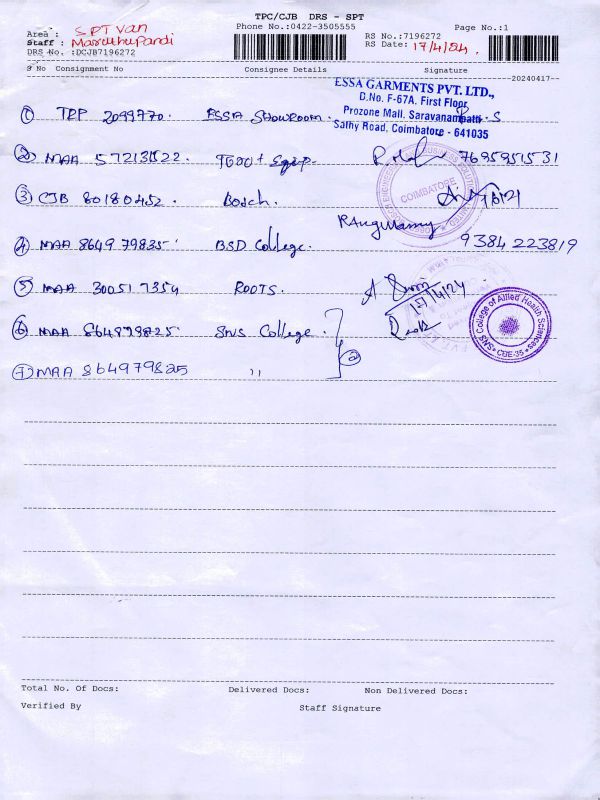 TPC/CJB DRS - SPT
Phone No.:0422-3505555 Page No.:1
Area : SPT Van
Staff : MaruthuPandi
DRS No. :DCJB7196272
RS No.:7196272
RS Date: 17/4/24.
S No Consignment No Consignee Details Signature
20240417
ESSA GARMENTS PVT. LTD.,
D.No. F-67A, First Floor,
Prozone Mall, Saravanampatti
Sathy Road, Coimbatore - 641035
① TRP 2099770. ESSA Showroom. S
② MAA 572131522 7695951531
COIMBATORE
③ CJB 80180452. Bosch.
④ MAA 864979835 BSD College. 9384223819
⑤ MAA 300517354 ROOTS.
17/4/24
⑥ MAA 864979825 SNS College.
⑦ MAA 864979825 ,, ②
SNS College of Allied Health Sciences
CBE-35
Total No. Of Docs: Delivered Docs: Non Delivered Docs:
Verified By Staff Signature